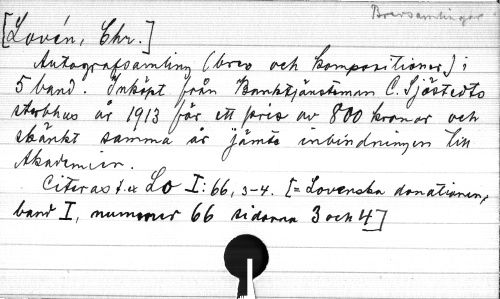 Brevsamlingar
[Lovén, Chr.]
Autografsamling (brev och kompositioner) i
5 band. Inköpt från Banktjänsteman C. Sjöstedts
sterbhus år 1913 för ett pris av 800 kronor och
skänkt samma år jämte inbindningen till
Akademien.
Citeras t. ex Lo I: 66, 3-4. [= Lovénska donationen,
band I, nummer 66 sidorna 3 och 4]